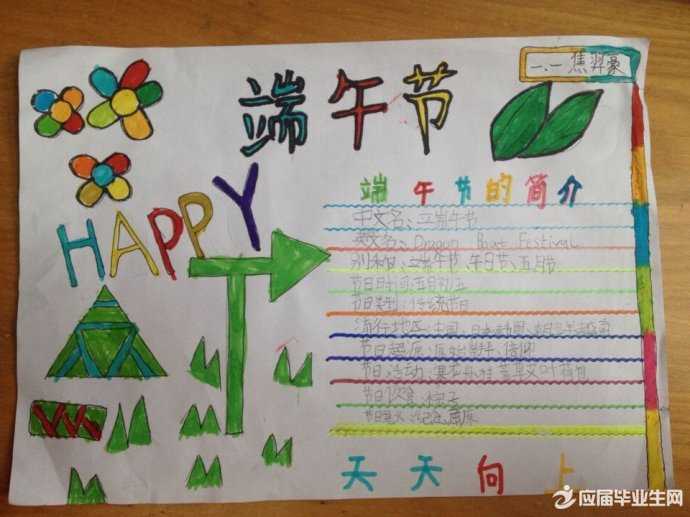 一、一 焦羿豪
端午节
HAPPY
端午节的简介
中文名:端午节
英文名:Dragon Boat Festival
别称:端午节、午日节、五月节
节日时间:五月初五
节日类型:传统节日
流行地区:中国、日本
节日起源:
节日活动:
节日饮食:粽子
节日意义:纪念屈原
天天向上
应届毕业生网